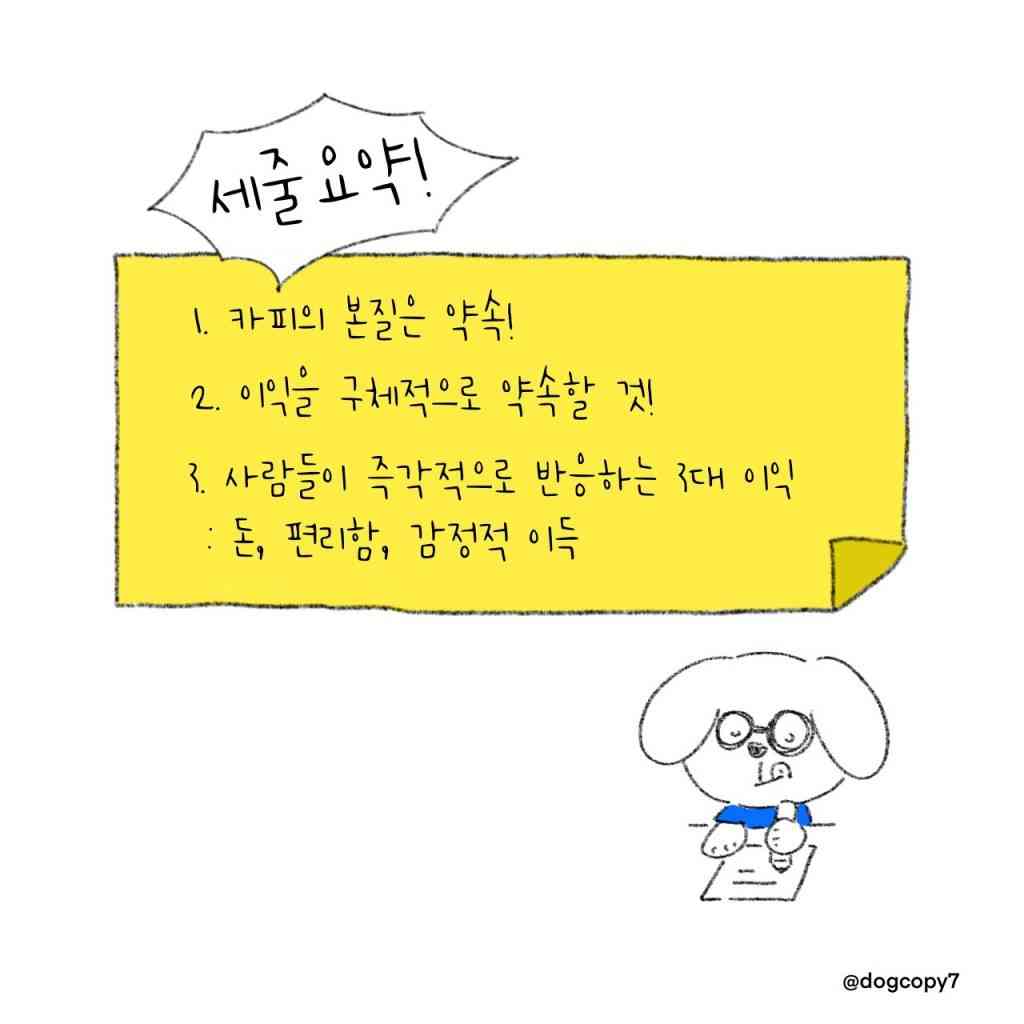 세줄요약!
1. 카피의 본질은 약속!
2. 이익을 구체적으로 약속할 것!
3. 사람들이 즉각적으로 반응하는 3대 이익
: 돈, 편리함, 감정적 이득
@dogcopy7